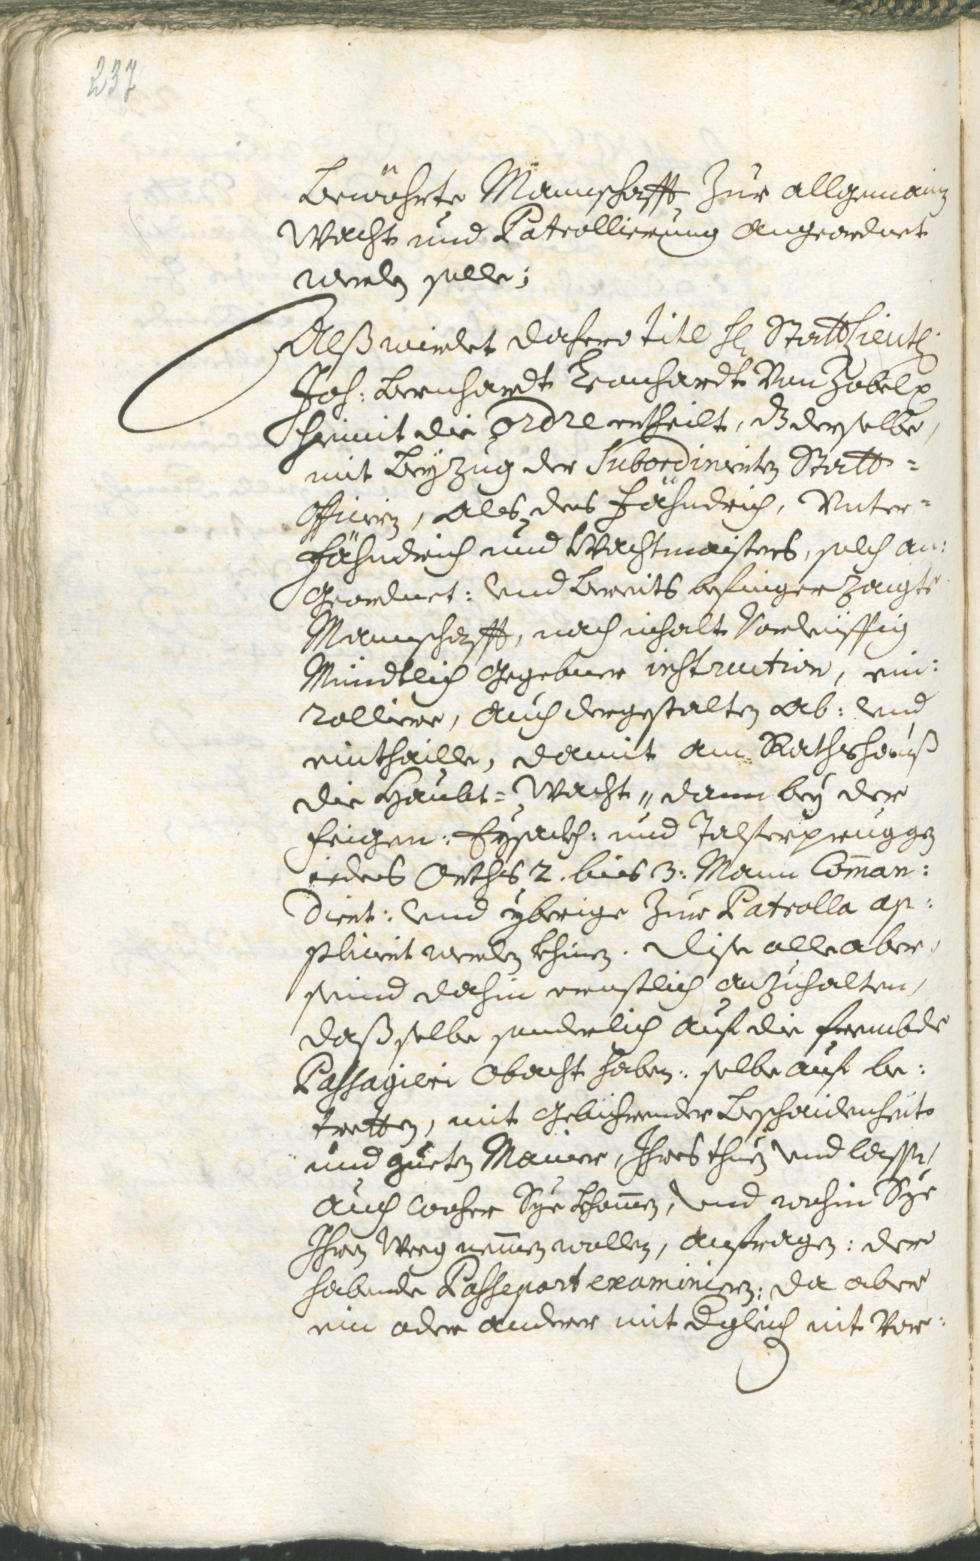 237
bewöhrte Mannschafft zur allgemainen
Wacht und Patrollierung angeordnet
werden solle;
Alß wirdet dahero titl h: Stattlieut:
Joh: Bernhardt Leonhardt Von Zobel
hiemit die ordre ertheilt, dz derselbe,
mit Beyzug der Subordinierten Statt=
Officiern, als des Fähndrich, Unter=
fähndrich und Wachtmaisters, solch an:
geordnet: und bereits
Mannschafft, nach inhalt Vorleüffig
Mündtlich gegebner instruction, ein:
rolliere, auch dergestalten ab: und
einthaille, damit am Rathshauß
die Haubt=Wacht, dann bey der
Feigen: Eysackh: und Talferpruggen
iedes Orths 2. bis 3: Mann Coman:
diert: und yberige zur Patrolla ap:
pliciert werden khinen. Dise alle aber,
seind dahin ernstlich anzuhalten,
daß selbe sonderlich auf die frembde
Passagieri obacht haben: selbe auf be:
tretten, mit gebührender Beschaidenheit
und gueten Manier, Ihres thuen und lassen,
auch woher Sye khomen, und wohin Sye
Ihren Weeg nemen wollen, anfragen: der
habende Passeport examiniern: da aber
ein oder anderer mit dgleich nit Vor: